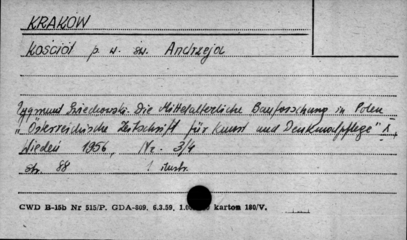 KRAKÓW
Kościół p. w. św. Andrzeja
Zygmunt Świechowski. Die Mittelalterliche Bauforschung in Polen
"Österreichische Zeitschrift für Kunst und Denkmalpflege" X,
Wiedeń 1956, Nr. 3/4
str. 88 1 ilustr.
CWD B-15b Nr 515/P. GDA-809. 6.3.59, karton 180/V.